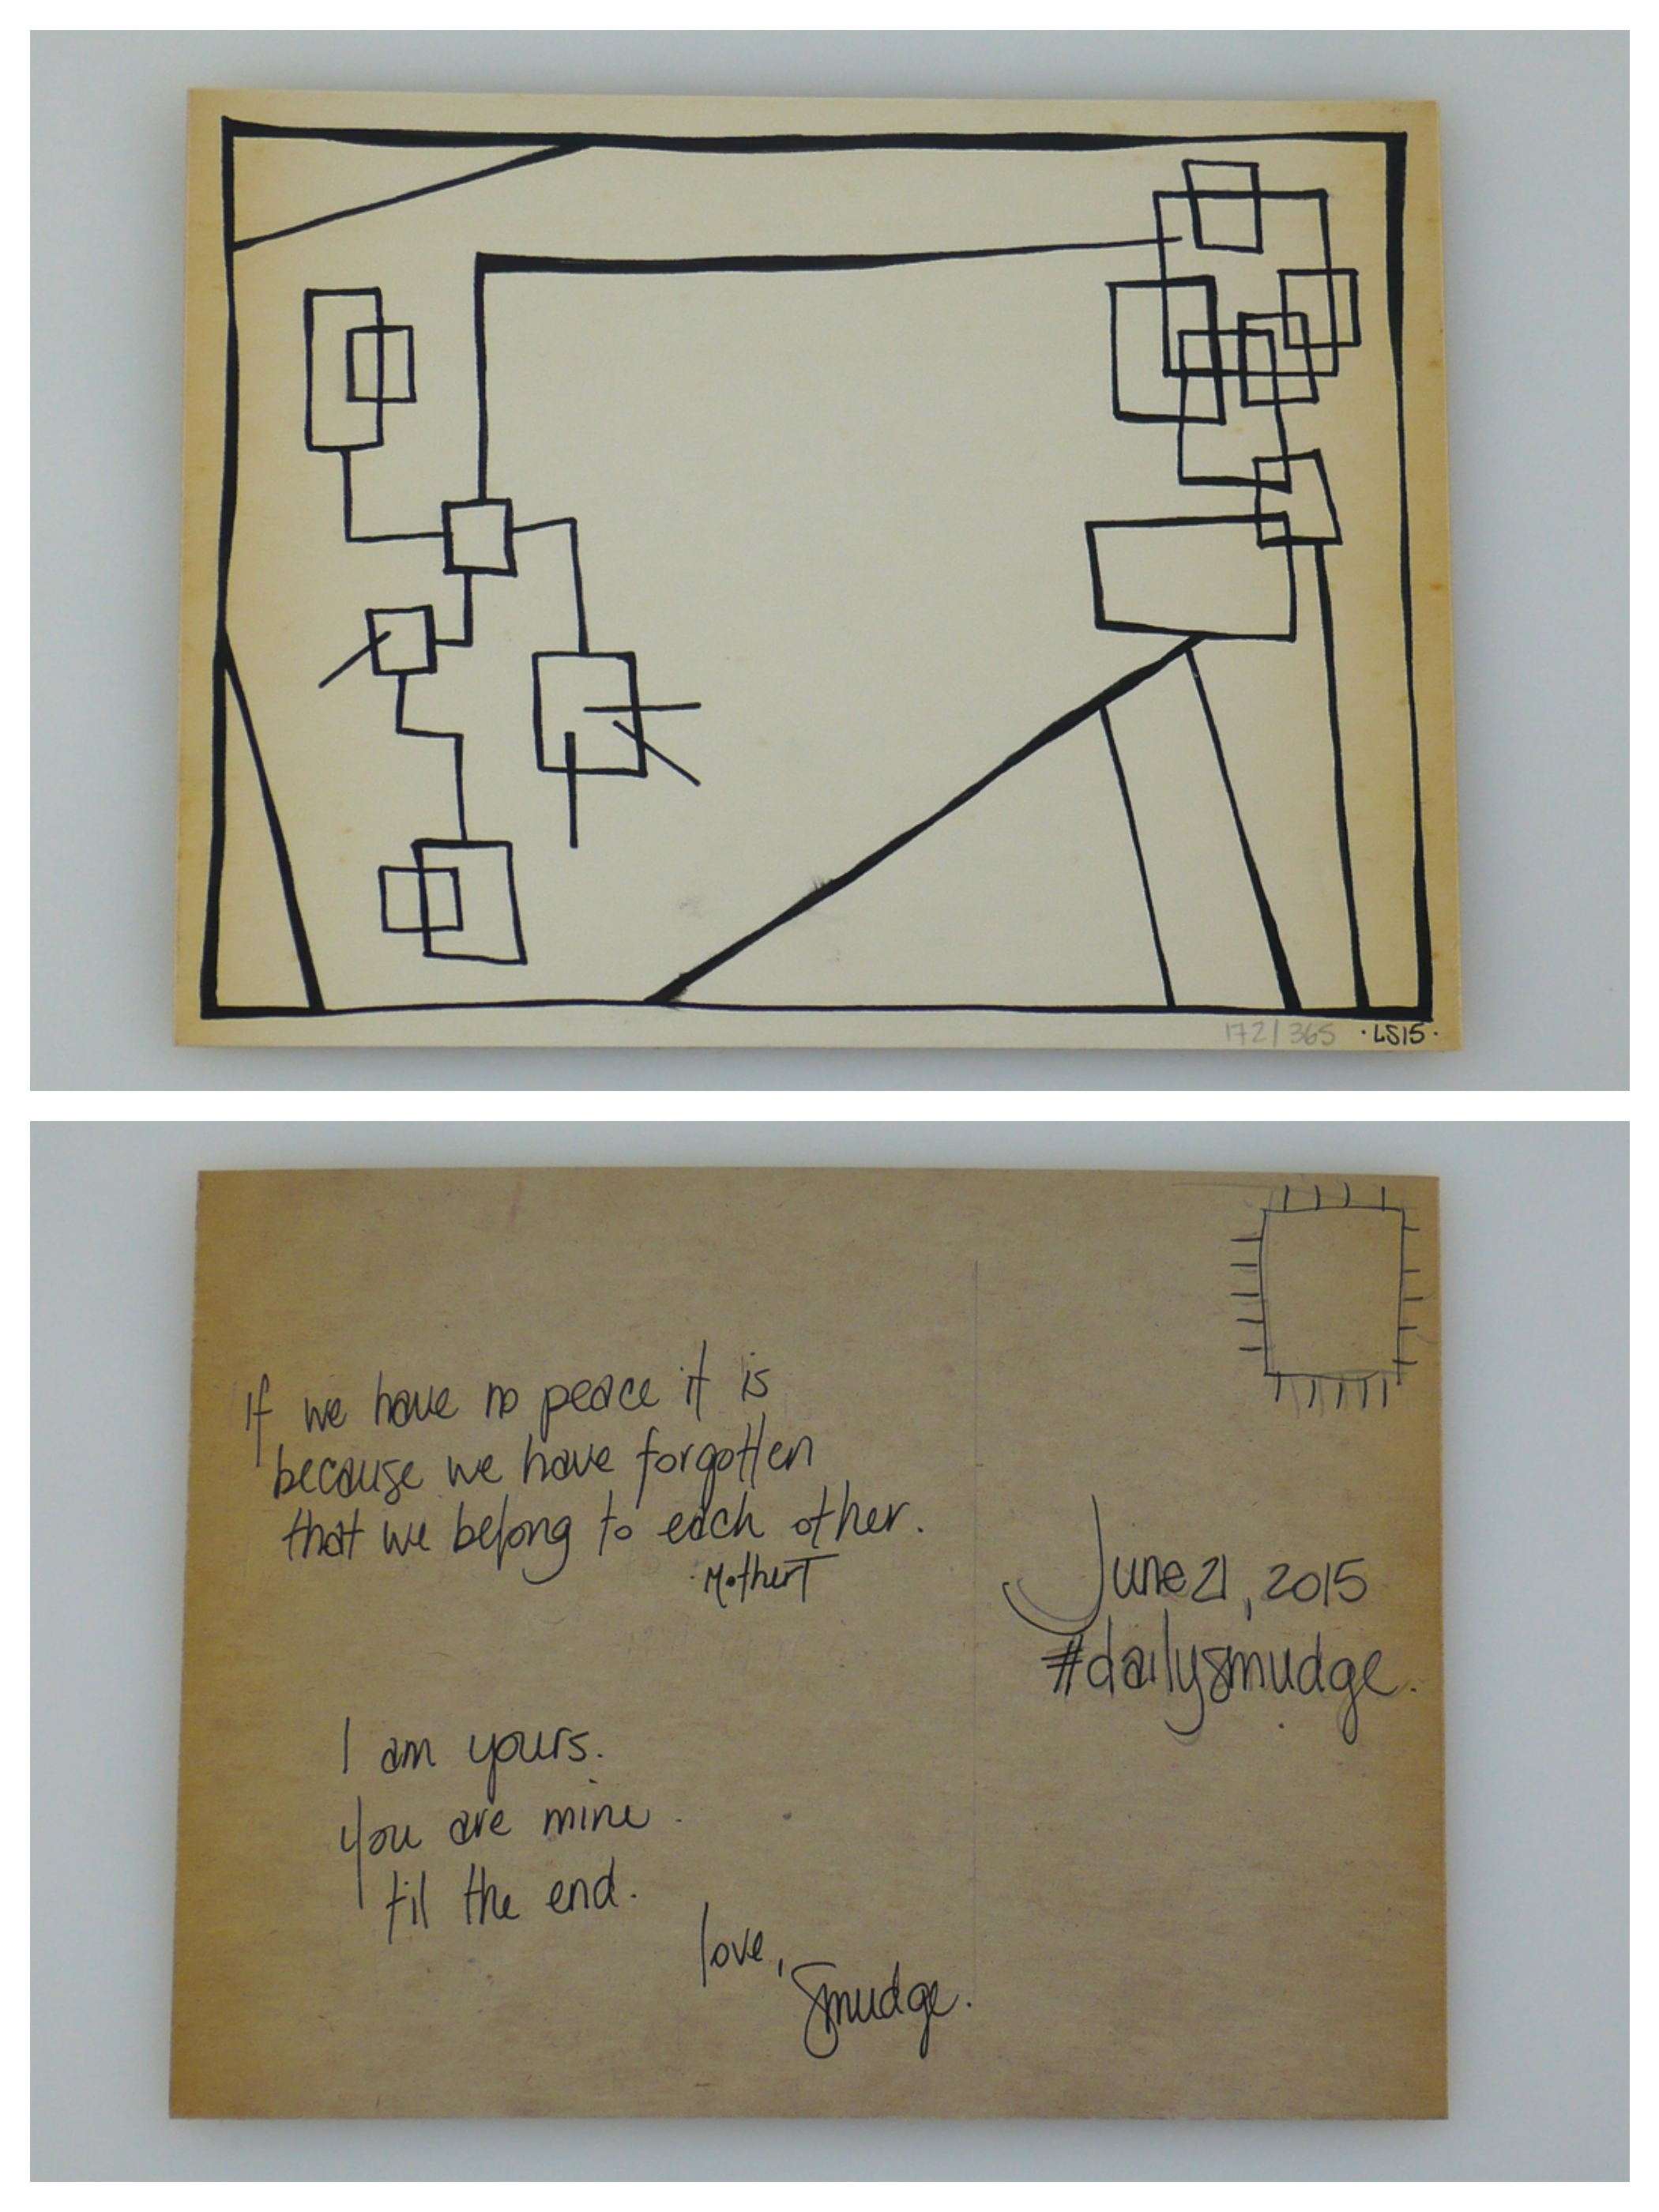 172/365 ·LS15·
If we have no peace it is
because we have forgotten
that we belong to each other.
·MotherT
June 21, 2015
#dailysmudge.
I am yours.
You are mine.
til the end.
love,
Smudge.